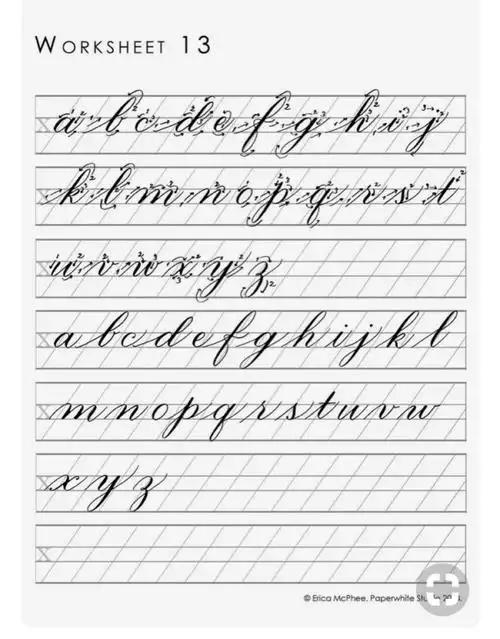 WORKSHEET 13
x a b c d e f g h i j
x k l m n o p q r s t
x u v w x y z
x a b c d e f g h i j k l
x m n o p q r s t u v w
x x y z
x
© Erica McPhee. Paperwhite Studio